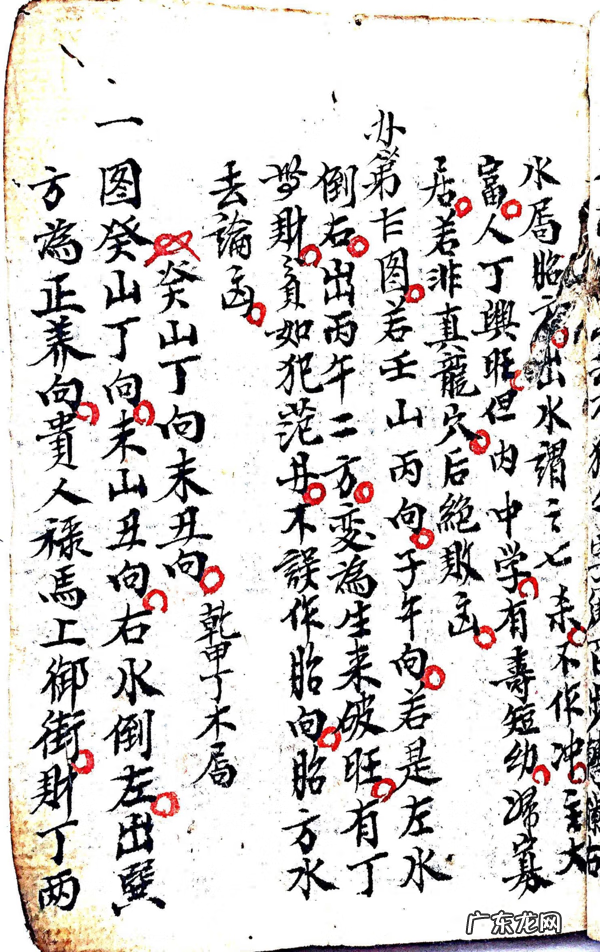 水局胎方出水謂之七杀不作冲主大
富人丁興旺但内中学有壽短幼婦寡
居若非真龍穴后絶敗凶
办第七图若壬山丙向子午向若是左水
倒右出丙午二方变為生来破旺有丁
財貧如犯范丹不誤作胎向胎方水
去論凶
癸山丁向未丑向 乾甲丁木局
一图癸山丁向未山丑向右水倒左出巽
方為正养向貴人禄馬上御街財丁两
广东龙网